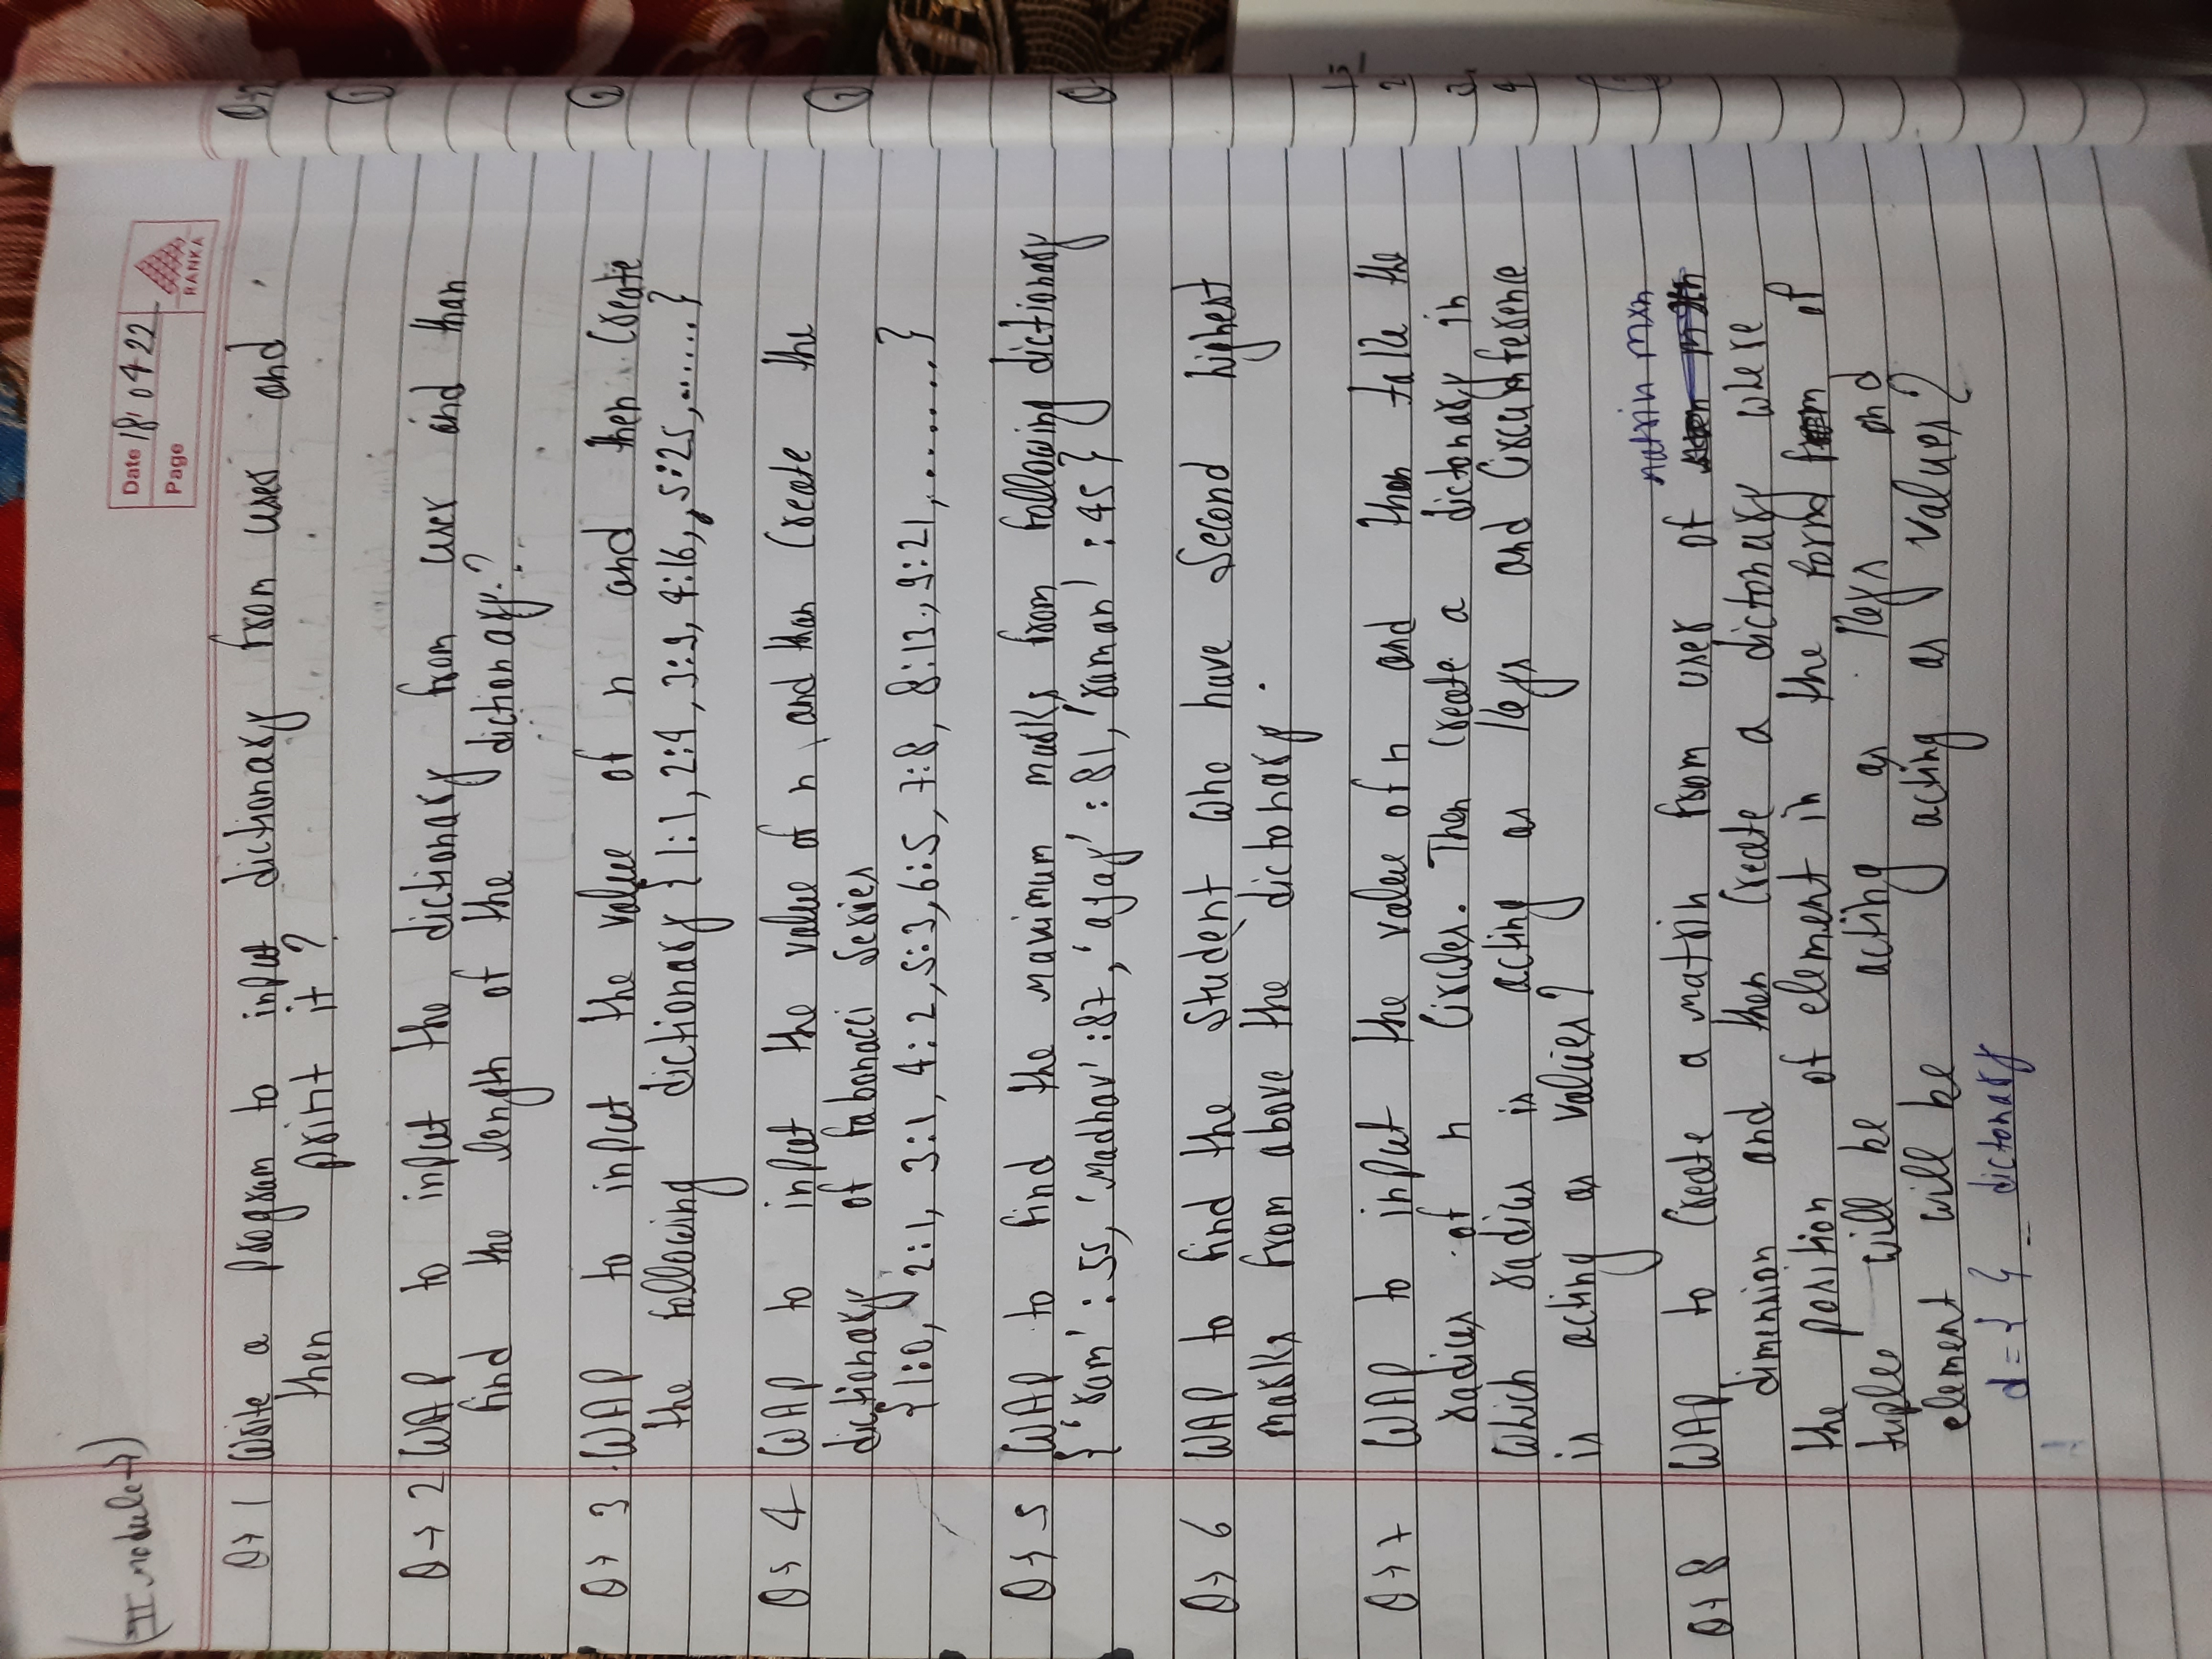 (II module →)
Date 18/04/22
Page
RANKA
Q→ 1 Write a program to input dictionary from user and
then print it ?
Q→ 2 WAP to input the dictionary from user and than
find the length of the dictionary.?
Q→ 3 WAP to input the value of n and then Create
the following dictionary {1:1, 2:4, 3:9, 4:16, 5:25,.......}
Q→ 4 WAP to input the value of n, and than Create the
dictionary of fabonacci Series
{1:0, 2:1, 3:1, 4:2, 5:3, 6:5, 7:8, 8:13, 9:21, .......}
Q→ 5 WAP to find the maximum marks from following dictionary
{'ram' : 55, 'Madhav' :87, 'ajay' : 81, 'raman' : 45}
Q→ 6 WAP to find the Student Who have Second highest
marks from above the dictonary.
Q→ 7 WAP to input the value of n and then take the
radius of n Circles. Then Create a dictonary in
Which radius is acting as keys and Circumference
is acting as values?
matrix mxn
Q→ 8 WAP to Create a matrix from user of
dimension and then Create a dictonary where
the position of element in the form of
tuples will be acting as keys and
element will be acting as values?
d = { } - dictonary